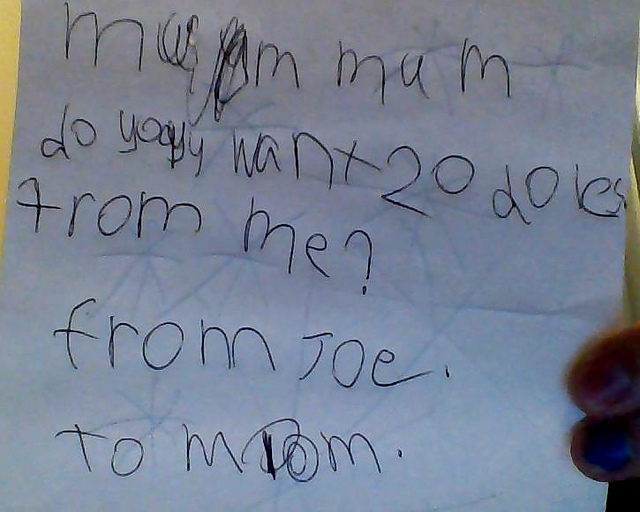 mum mum
do you want 20 doles
from me?
from Joe.
to mom.